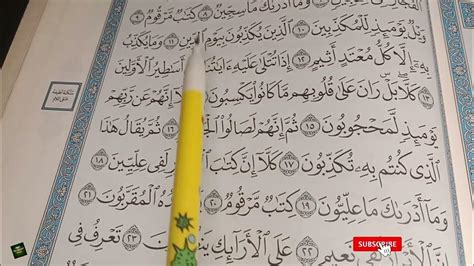 وَمَآ أَدْرَىٰكَ مَا سِجِّينٌ ٨ كِتَٰبٌ مَّرْقُومٌ ٩
وَيْلٌ يَوْمَئِذٍ لِّلْمُكَذِّبِينَ ١٠ ٱلَّذِينَ يُكَذِّبُونَ بِيَوْمِ ١١ وَمَا يُكَذِّبُ
بِهِۦٓ إِلَّا كُلُّ مُعْتَدٍ أَثِيمٍ ١٢ إِذَا تُتْلَىٰ عَلَيْهِ أَسَٰطِيرُ ٱلْأَوَّلِينَ
١٣ كَلَّا بَلْ رَانَ عَلَىٰ قُلُوبِهِم مَّا كَانُوا۟ يَكْسِبُونَ إِنَّهُمْ عَن رَّبِّهِمْ
يَوْمَئِذٍ لَّمَحْجُوبُونَ ١٥ ثُمَّ إِنَّهُمْ لَصَالُوا۟ ١٦ ثُمَّ يُقَالُ هَٰذَا
ٱلَّذِى كُنتُم بِهِۦ تُكَذِّبُونَ ١٧ كَلَّآ إِنَّ كِتَٰبَ لَفِى عِلِّيِّينَ ١٨
وَمَآ أَدْرَىٰكَ مَا عِلِّيُّونَ ١٩ كِتَٰبٌ مَّرْقُومٌ ٢٠ ٱلْمُقَرَّبُونَ ٢١
إِنَّ لَفِى نَعِيمٍ ٢٢ عَلَى ٱلْأَرَآئِكِ ٢٣ تَعْرِفُ فِى
SUBSCRIBE